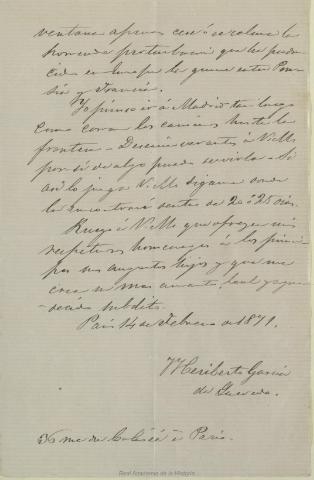 ventana apenas cesó o se calma la
horrenda perturbación que ha produ-
cido en Europa la guerra entre Pru-
sia y Francia.
Yo pienso ir á Madrid tan luego
como corran los caminos hasta la
frontera. Desearía ver antes á V.M.
por si de algo puedo servirla. Si
así lo juzga V.M. dígame donde
la encontraré dentro de 20 á 25 días.
Ruego á V.M. que ofrezca mis
respetuosos homenages á los prínci-
pes sus augustos hijos y que me
crea su mas amante, leal y agra-
decido subdito.
París 14 de Febrero de 1871.
J. Heriberto García
de Quevedo.
36 rue de à Paris.
Real Academia de la Historia